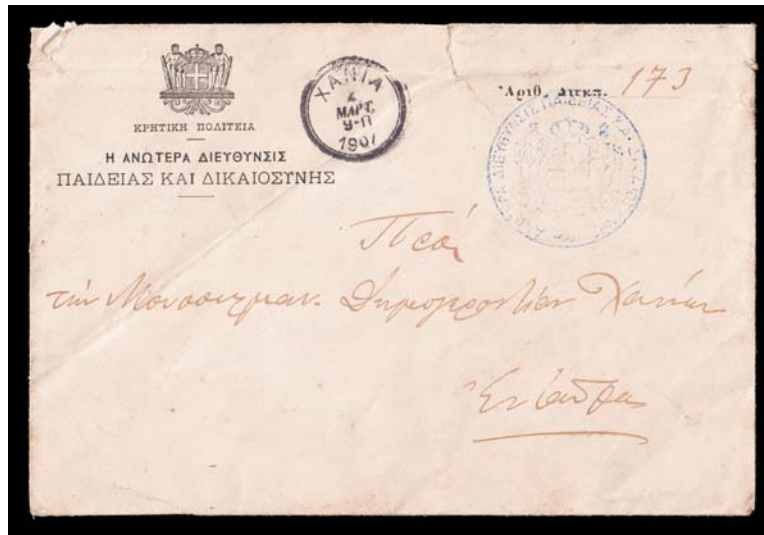 ΚΡΗΤΙΚΗ ΠΟΛΙΤΕΙΑ
Η ΑΝΩΤΕΡΑ ΔΙΕΥΘΥΝΣΙΣ
ΠΑΙΔΕΙΑΣ ΚΑΙ ΔΙΚΑΙΟΣΥΝΗΣ
ΧΑΝΙΑ
ΜΑΡΤ
9-Π
1907
Ἀριθ. Διεκπ. 173
ΑΝΩΤΕΡΑ ΔΙΕΥΘΥΝΣΙΣ ΠΑΙΔΕΙΑΣ ΚΑΙ
Πρός
τὴν Μουσουλμαν. Δημογεροντίαν Χανίων
Ἐνταῦθα